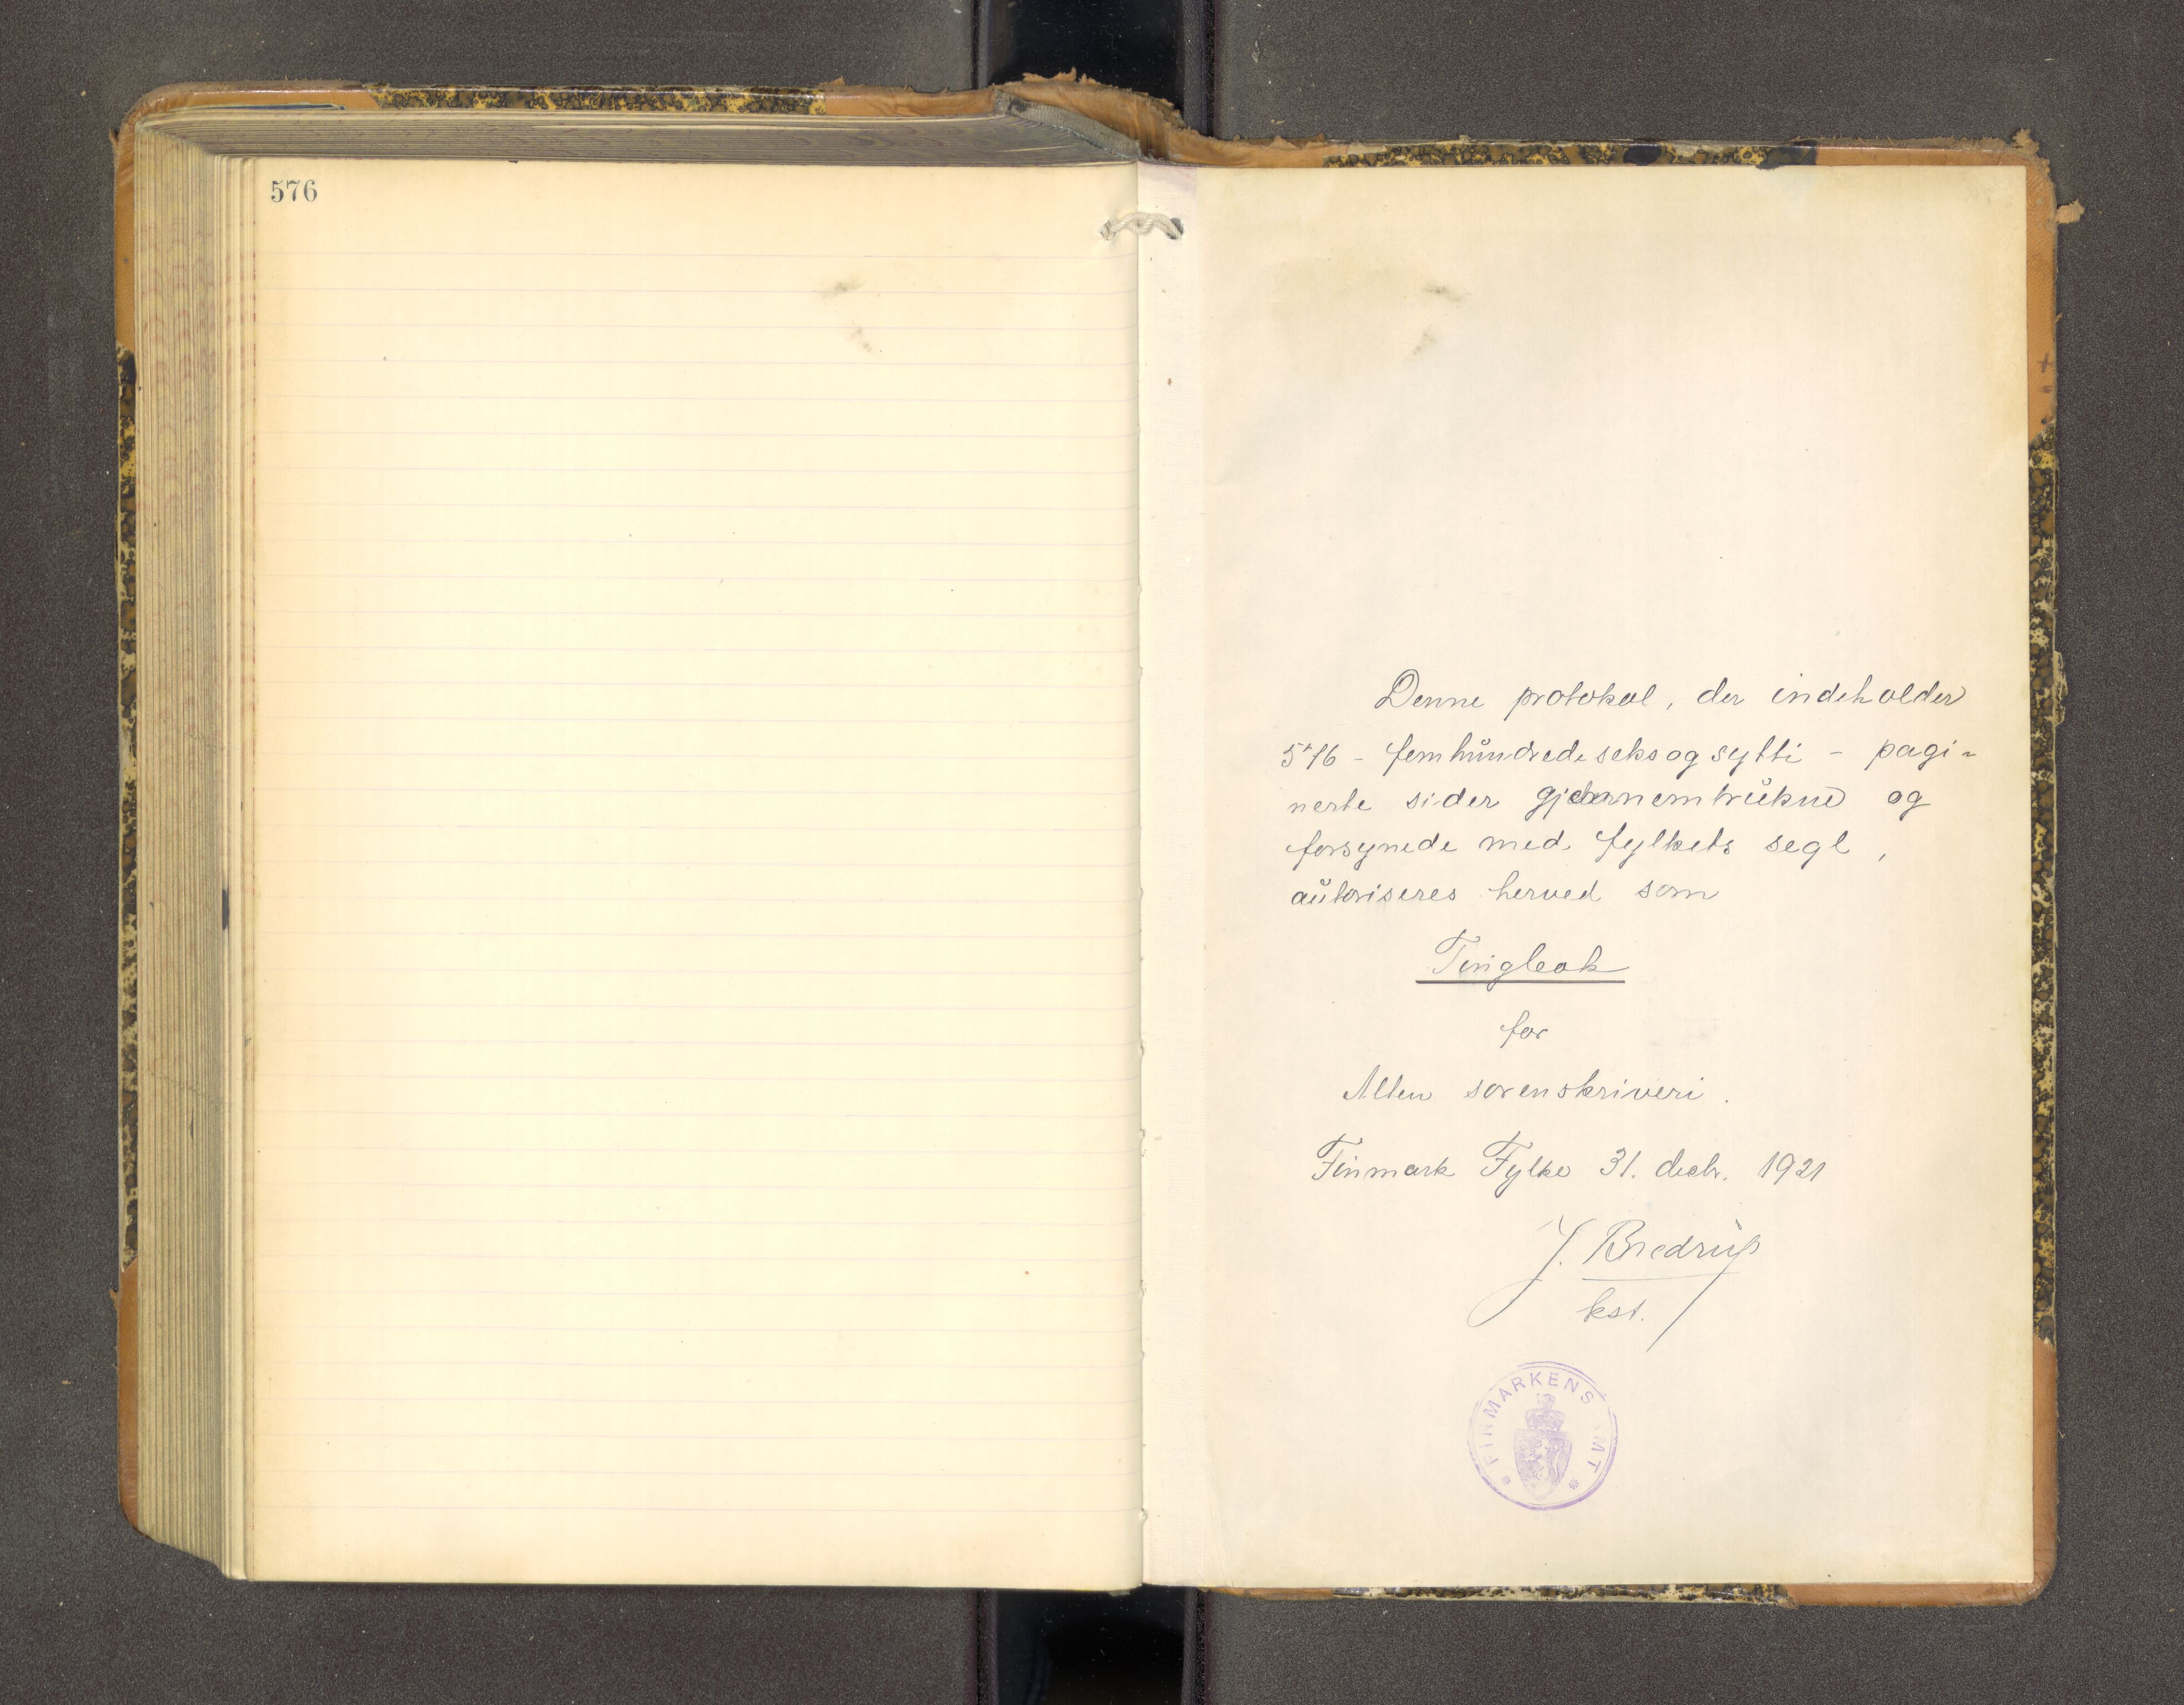 576
Denne protokol, der indeholder
576 - femhundredeseksogsytti - pagi-
nerte sider gjennemtrukne og
forsynede med fylkets segl,
autoriseres herved som
Tingbok
for
Alten sorenskriveri.
Finmark Fylke 31. decbr. 1921
J. Bredrup
kst.
FINMARKENS AMT